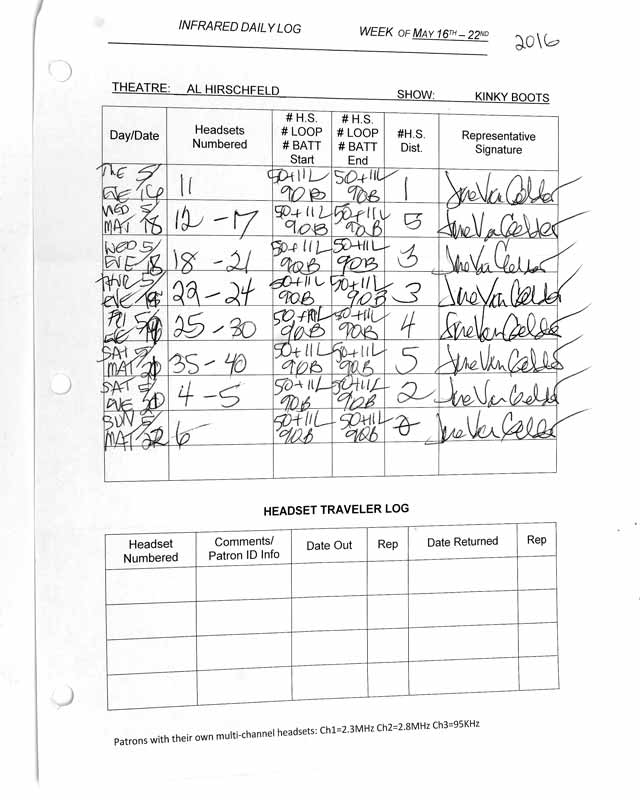 INFRARED DAILY LOG WEEK OF MAY 16TH – 22ND 2016
THEATRE: AL HIRSCHFELD SHOW: KINKY BOOTS
Day/Date Headsets Numbered # H.S. # LOOP # BATT Start # H.S. # LOOP # BATT End #H.S. Dist. Representative Signature
5/ 11 50+11L 90B 50+11L 90B 1
WED 5/ MAT 18 12 – 17 50+11L 90B 50+11L 90B 5
WED 5/ EVE 18 18 – 21 50+11L 90B 50+11L 90B 3
5/ EVE 22 – 24 50+11L 90B 50+11L 90B 3
FRI 5/ 25 – 30 50+11L 90B 50+11L 90B 4
SAT 5/ MAT 35 – 40 50+11L 90B 50+11L 90B 5
SAT 5/ EVE 4 – 5 50+11L 90B 50+11L 90B 2
SUN 5/ MAT 22 6 50+11L 90B 50+11L 90B
HEADSET TRAVELER LOG
Headset Numbered Comments/ Patron ID Info Date Out Rep Date Returned Rep
Patrons with their own multi-channel headsets: Ch1=2.3MHz Ch2=2.8MHz Ch3=95KHz